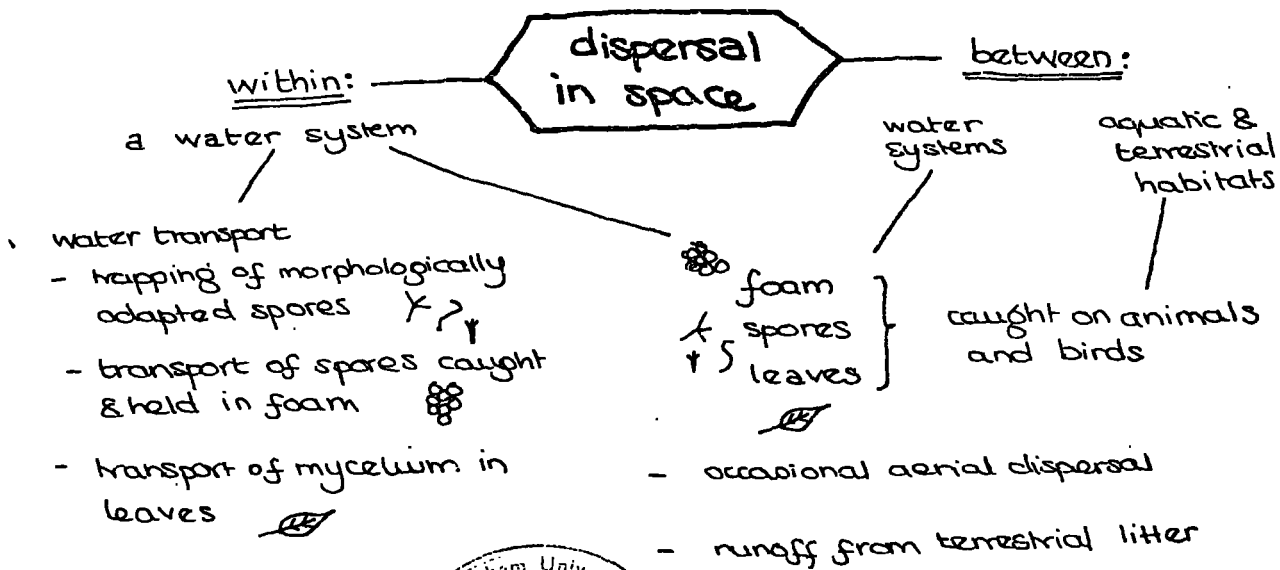 dispersal
in space
within:
a water system
water transport
- trapping of morphologically
adapted spores
- transport of spores caught
& held in foam
- transport of mycelium in
leaves
between:
water
systems
aquatic &
terrestrial
habitats
foam
spores
leaves
caught on animals
and birds
- occasional aerial dispersal
- runoff from terrestrial litter